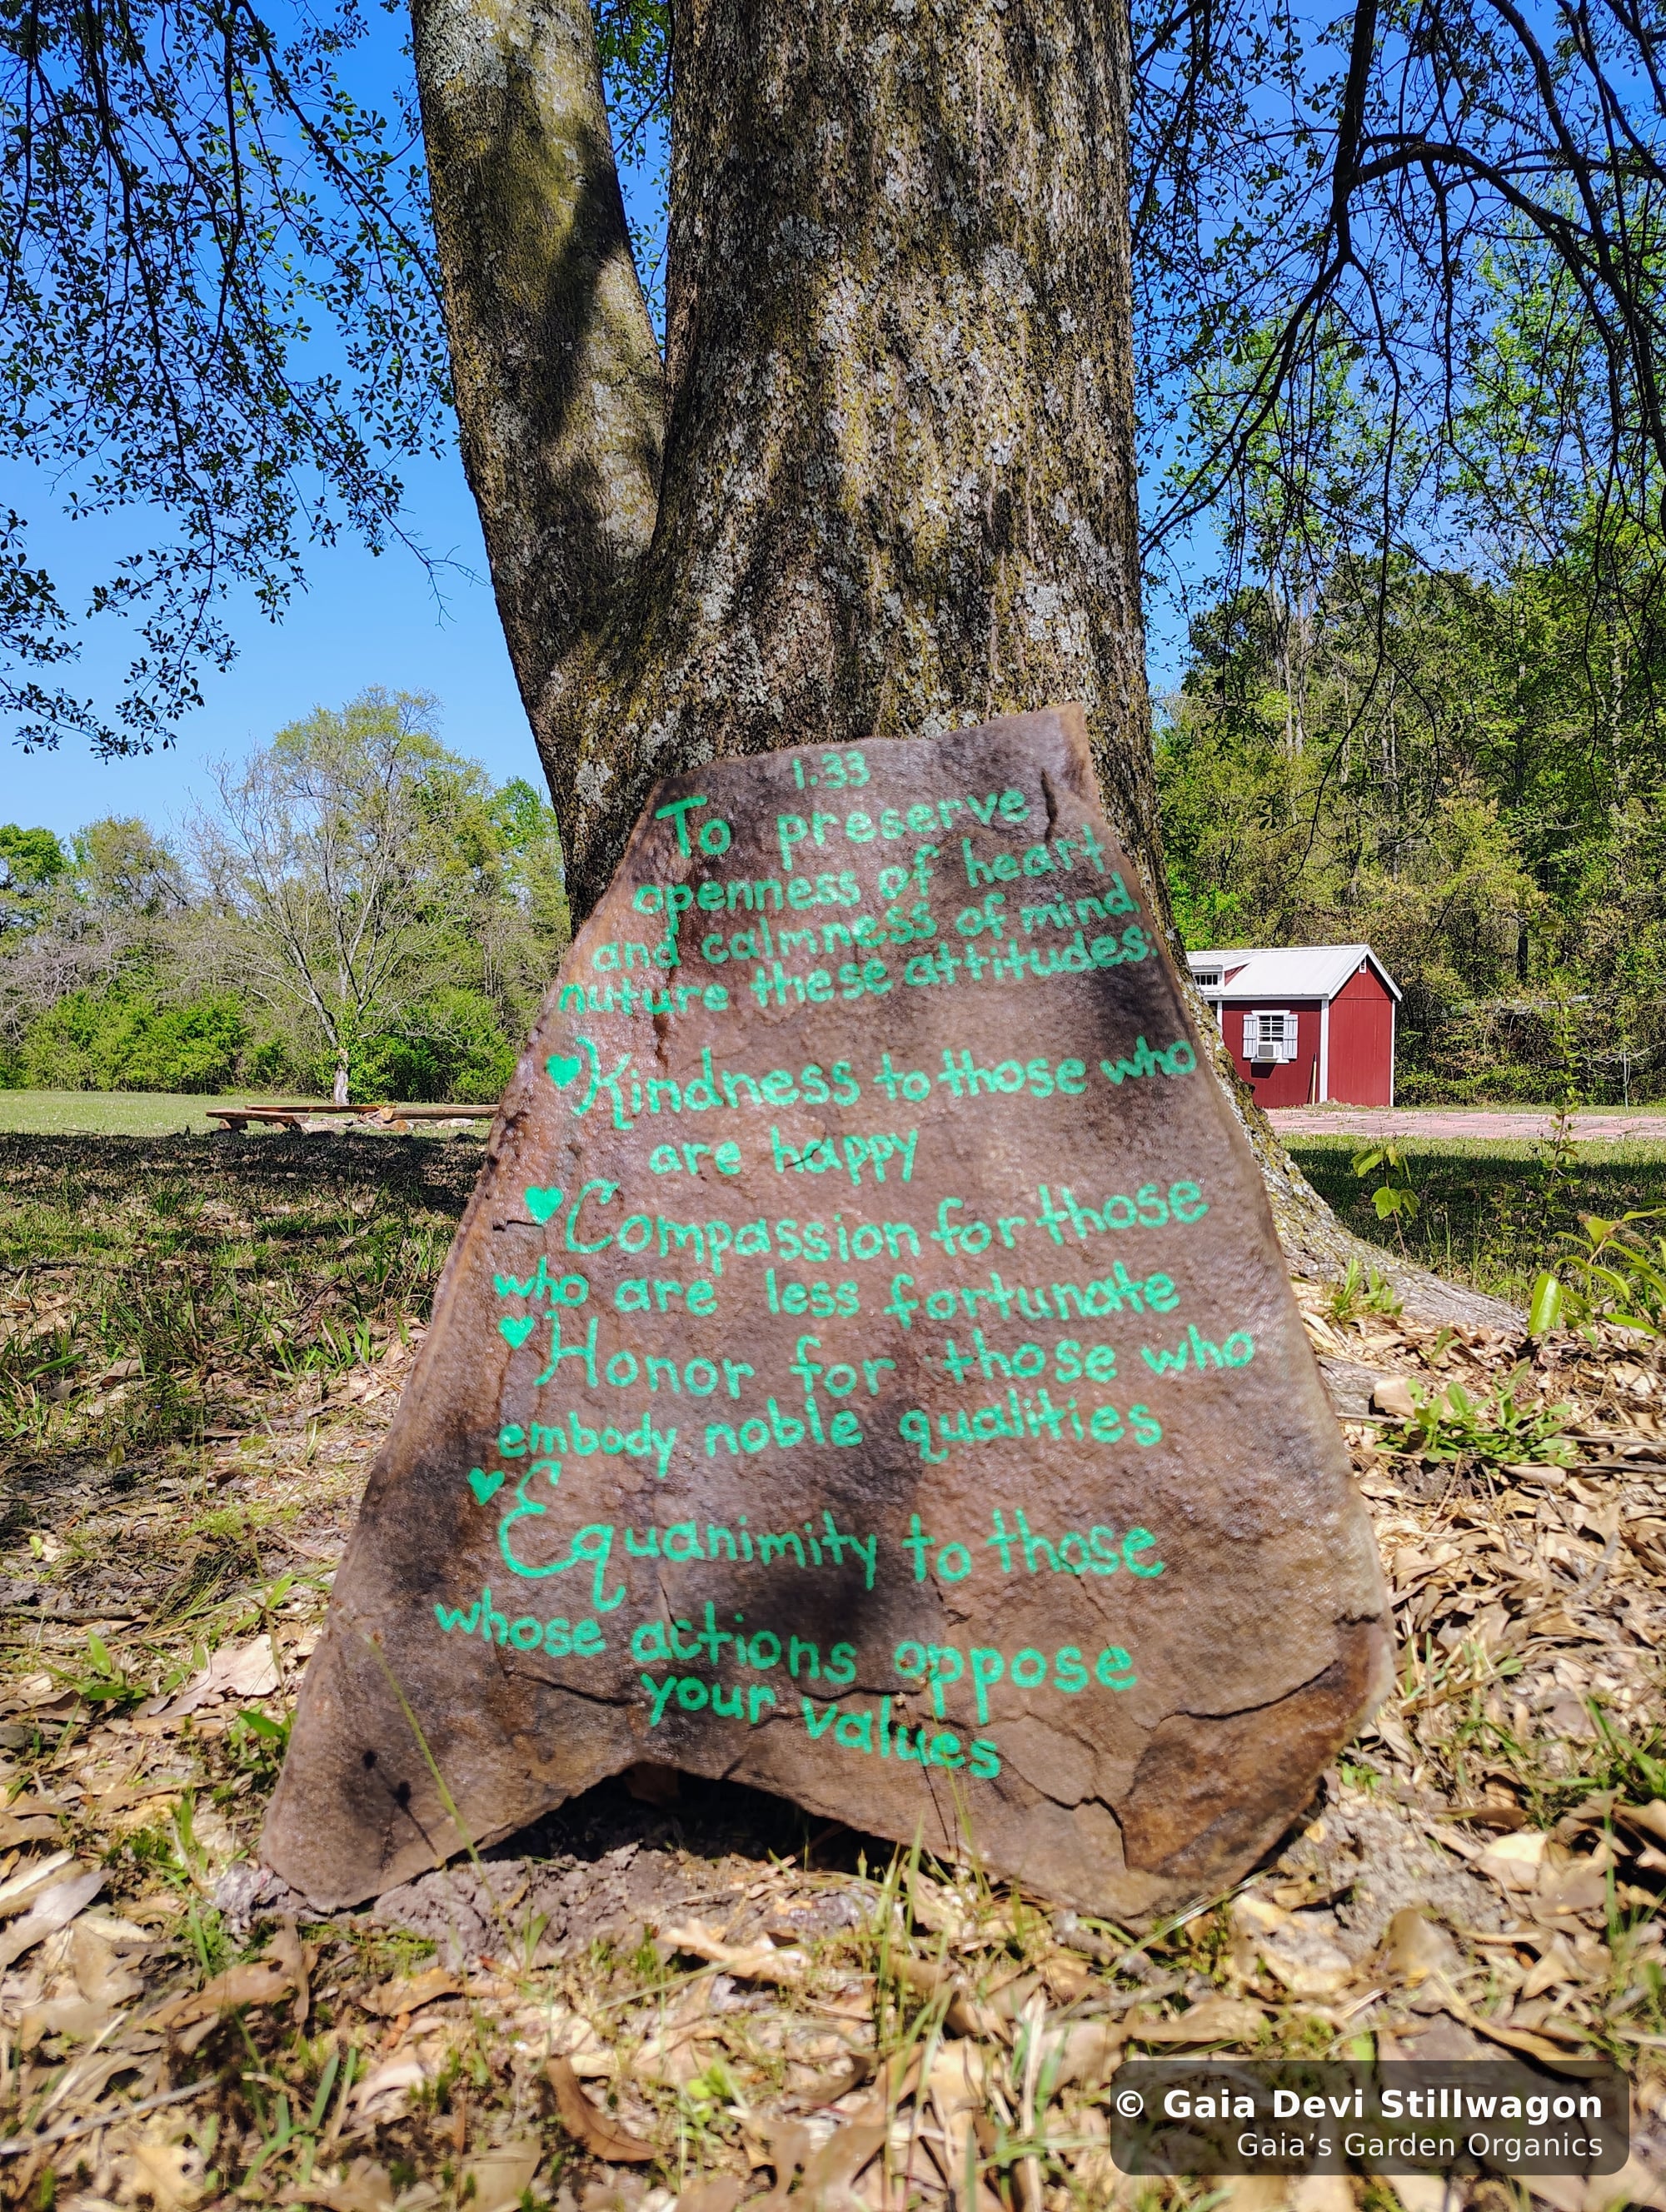 1.33
To preserve
openness of heart
and calmness of mind
nuture these attitudes:
♥Kindness to those who
are happy
♥Compassion for those
who are less fortunate
♥Honor for those who
embody noble qualities
♥Equanimity to those
whose actions oppose
your values
© Gaia Devi Stillwagon
Gaia’s Garden Organics